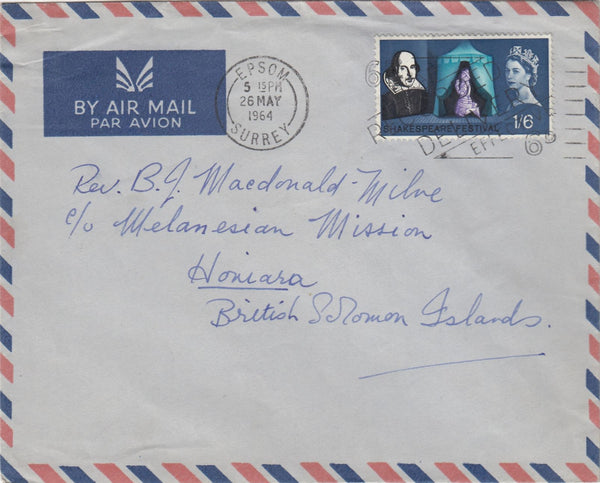 BY AIR MAIL
PAR AVION
EPSOM
5 15 PM
26 MAY
1964
SURREY
SHAKESPEARE FESTIVAL
1/6
Rev. B. J. Macdonald-Milne
c/o Melanesian Mission
Honiara
British Solomon Islands.